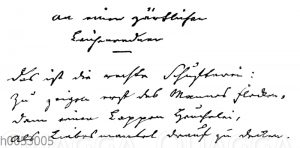 an einen zärtlichen
Leichenredner
Das ist die rechte Schusterei:
Zu zeigen erst des Mannes Flecken,
dann einen Lappen Heuchelei,
als Liebesmantel drauf zu decken.
h0053005